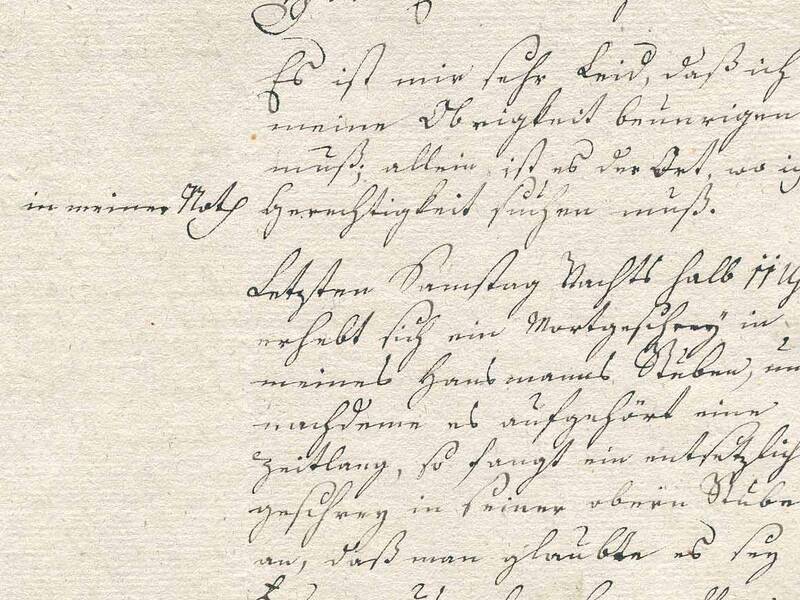 Es ist mir sehr Leid, daß ich
meine Obrigkeit beunrigen
muß; allein ist es der Ort, wo ich
in meiner Noth Gerechtigkeit suchen muß.
Letzten Samstag Nachts halb 11 Uh
erhebt sich ein Mortgeschrey in
meines Hansmanns Stuben, un
nachdeme es aufgehört eine
Zeitlang, so fangt ein entsetzlich
geschrey in seiner obern Stube
an, daß man glaubte es sey